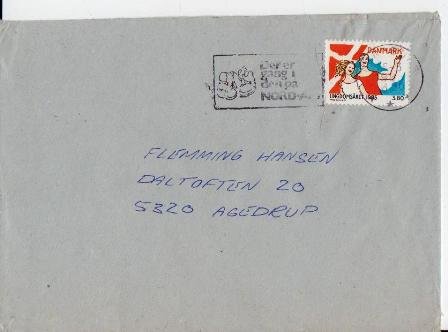 Der er
gang i
den på
NORD-A
DANMARK
UNGDOMSÅRET 1985
3.80
FLEMMING HANSEN
DALTOFTEN 20
5320 AGEDRUP